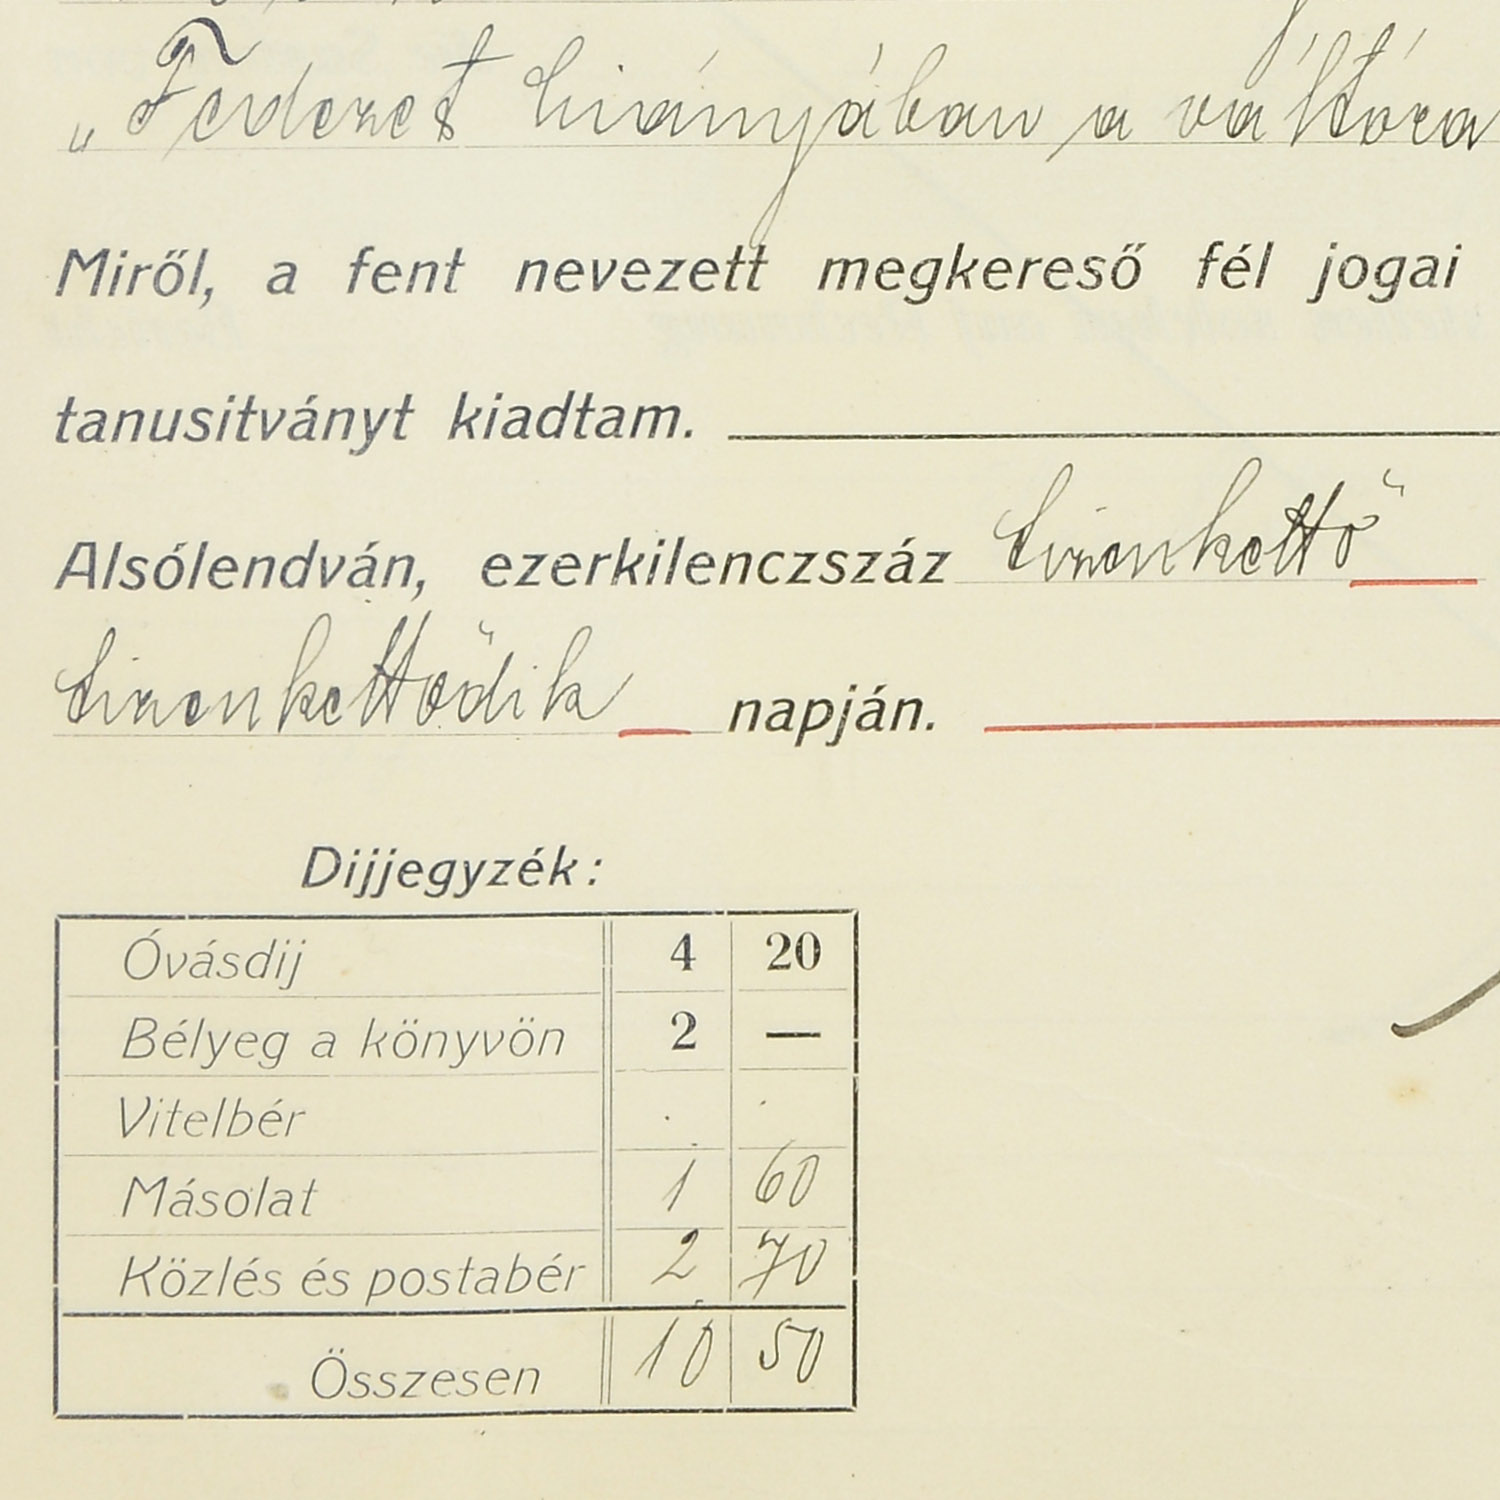 „Fedezet hiányában a váltóra
Miről, a fent nevezett megkereső fél jogai
tanusitványt kiadtam.
Alsólendván, ezerkilenczszáz tizenkettő
tizenkettődik napján.
Dijjegyzék:
Óvásdij 4 20
Bélyeg a könyvön 2 —
Vitelbér . .
Másolat 1 60
Közlés és postabér 2 70
Összesen 10 50